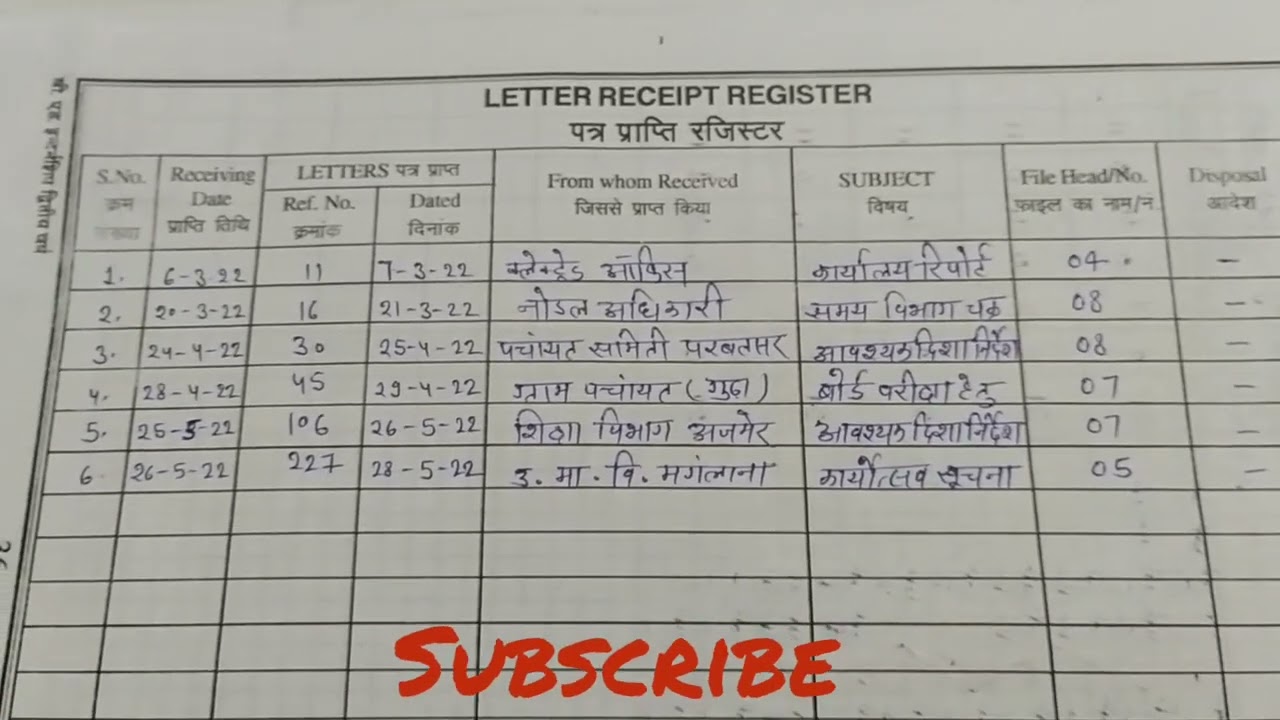 LETTER RECEIPT REGISTER
पत्र प्राप्ति रजिस्टर
S.No. क्रम संख्या Receiving Date प्राप्ति तिथि LETTERS पत्र प्राप्त Ref. No. क्रमांक Dated दिनांक From whom Received जिससे प्राप्त किया SUBJECT विषय File Head/No. फ़ाइल का नाम/न. Disposal आदेश
1. 6-3-22 11 7-3-22 ऑफिस कार्यालय रिपोर्ट 04 -
2. 20-3-22 16 21-3-22 नोडल अधिकारी समय विभाग चक्र 08 -
3. 24-4-22 30 25-4-22 पंचायत समिती परबतसर आवश्यक दिशा निर्देश 08 -
4. 28-4-22 45 29-4-22 ग्राम पंचायत (गुढ़ा) बोर्ड परीक्षा हेतु 07 -
5. 25-5-22 106 26-5-22 शिक्षा विभाग अजमेर आवश्यक दिशा निर्देश 07 -
6. 26-5-22 227 28-5-22 उ. मा. वि. मगंलाना कार्योत्सव सूचना 05 -
SUBSCRIBE